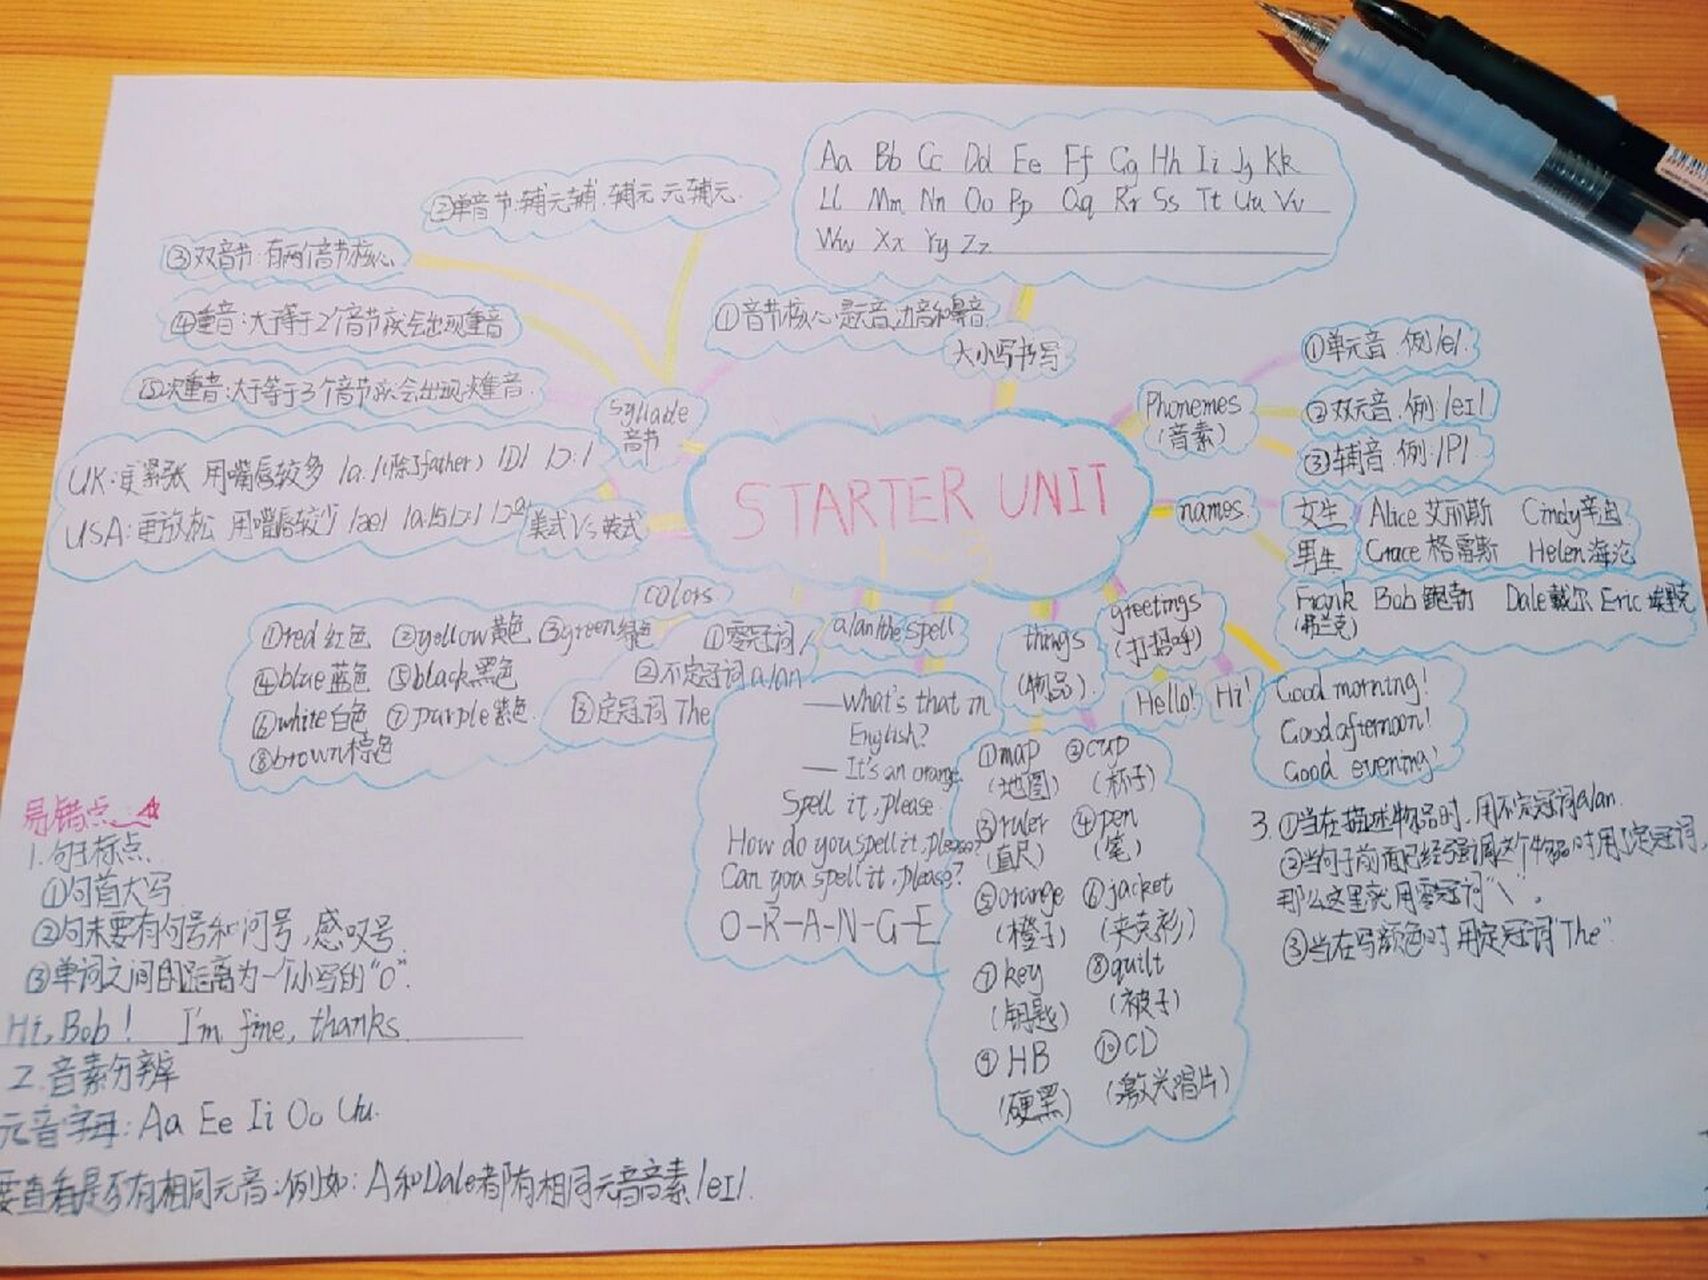 Aa Bb Cc Dd Ee Ff Gg Hh Ii Jj Kk
Ll Mm Nn Oo Pp Qq Rr Ss Tt Uu Vv
Ww Xx Yy Zz
大小写书写
STARTER UNIT
syllable
音节
①音节核心是元音,边音和鼻音
②单音节:辅元辅.辅元 元辅元.
③双音节:有两个音节核心
④重音:大于等于2个音节就会出现重音
⑤次重音:大于等于3个音节就会出现次重音.
美式Vs英式
UK:更紧张 用嘴唇较多 /ɑ:/(除了father) /ɒ/ /ɔ:/
USA:更放松 用嘴唇较少 /æ/
Phonemes
(音素)
①单元音.例/e/.
②双元音.例:/eɪ/
③辅音.例:/P/.
names.
女生 Alice 艾丽斯 Cindy辛迪
Grace 格雷斯 Helen 海沦
男生
Frank Bob 鲍勃 Dale戴尔 Eric 埃里克
(弗兰克)
colors
①red 红色 ②yellow黄色 ③green绿色
④blue蓝色 ⑤black黑色
⑥white白色 ⑦purple紫色.
⑧brown棕色
a/an/the.spell
①零冠词/
②不定冠词 a/an
③定冠词 The
—What's that in
English?
—It's an orange.
Spell it, please.
How do you spell it, please?
Can you spell it, please?
O-R-A-N-G-E
things
(物品).
①map ②cup
(地图) (杯子)
③ruler ④pen
(直尺) (笔)
⑤orange ⑥jacket
(橙子) (夹克衫)
⑦key ⑧quilt
(钥匙) (被子)
⑨HB ⑩CD
(硬黑) (激光唱片)
greetings
(打招呼)
Hello! Hi!
Good morning!
Good afternoon!
Good evening!
易错点
1.句子标点.
①句首大写
②句末要有句号和问号,感叹号.
③单词之间的距离为一个小写的"o".
Hi, Bob! I'm fine, thanks.
2.音素分辨
元音字母:Aa Ee Ii Oo Uu.
要查看是否有相同元音:例如:A和Dale都有相同元音音素/eɪ/.
3.①当在描述物品时,用不定冠词a/an.
②当句子前面已经强调这个物品时用了定冠词,
那么这里就用零冠词"\".
③当在写颜色时 用定冠词"The".